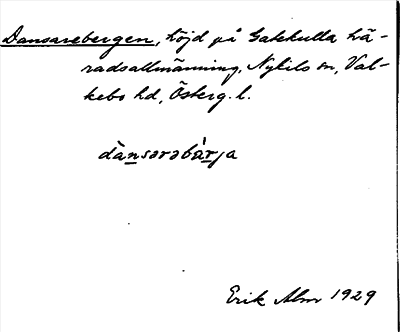 Dansarebergen, höjd på Gakkulla hä-
radsallmänning, Nykils sn, Val-
kebo hd, Österg. l.
dànsərəbär̀ja
Erik Alm 1929